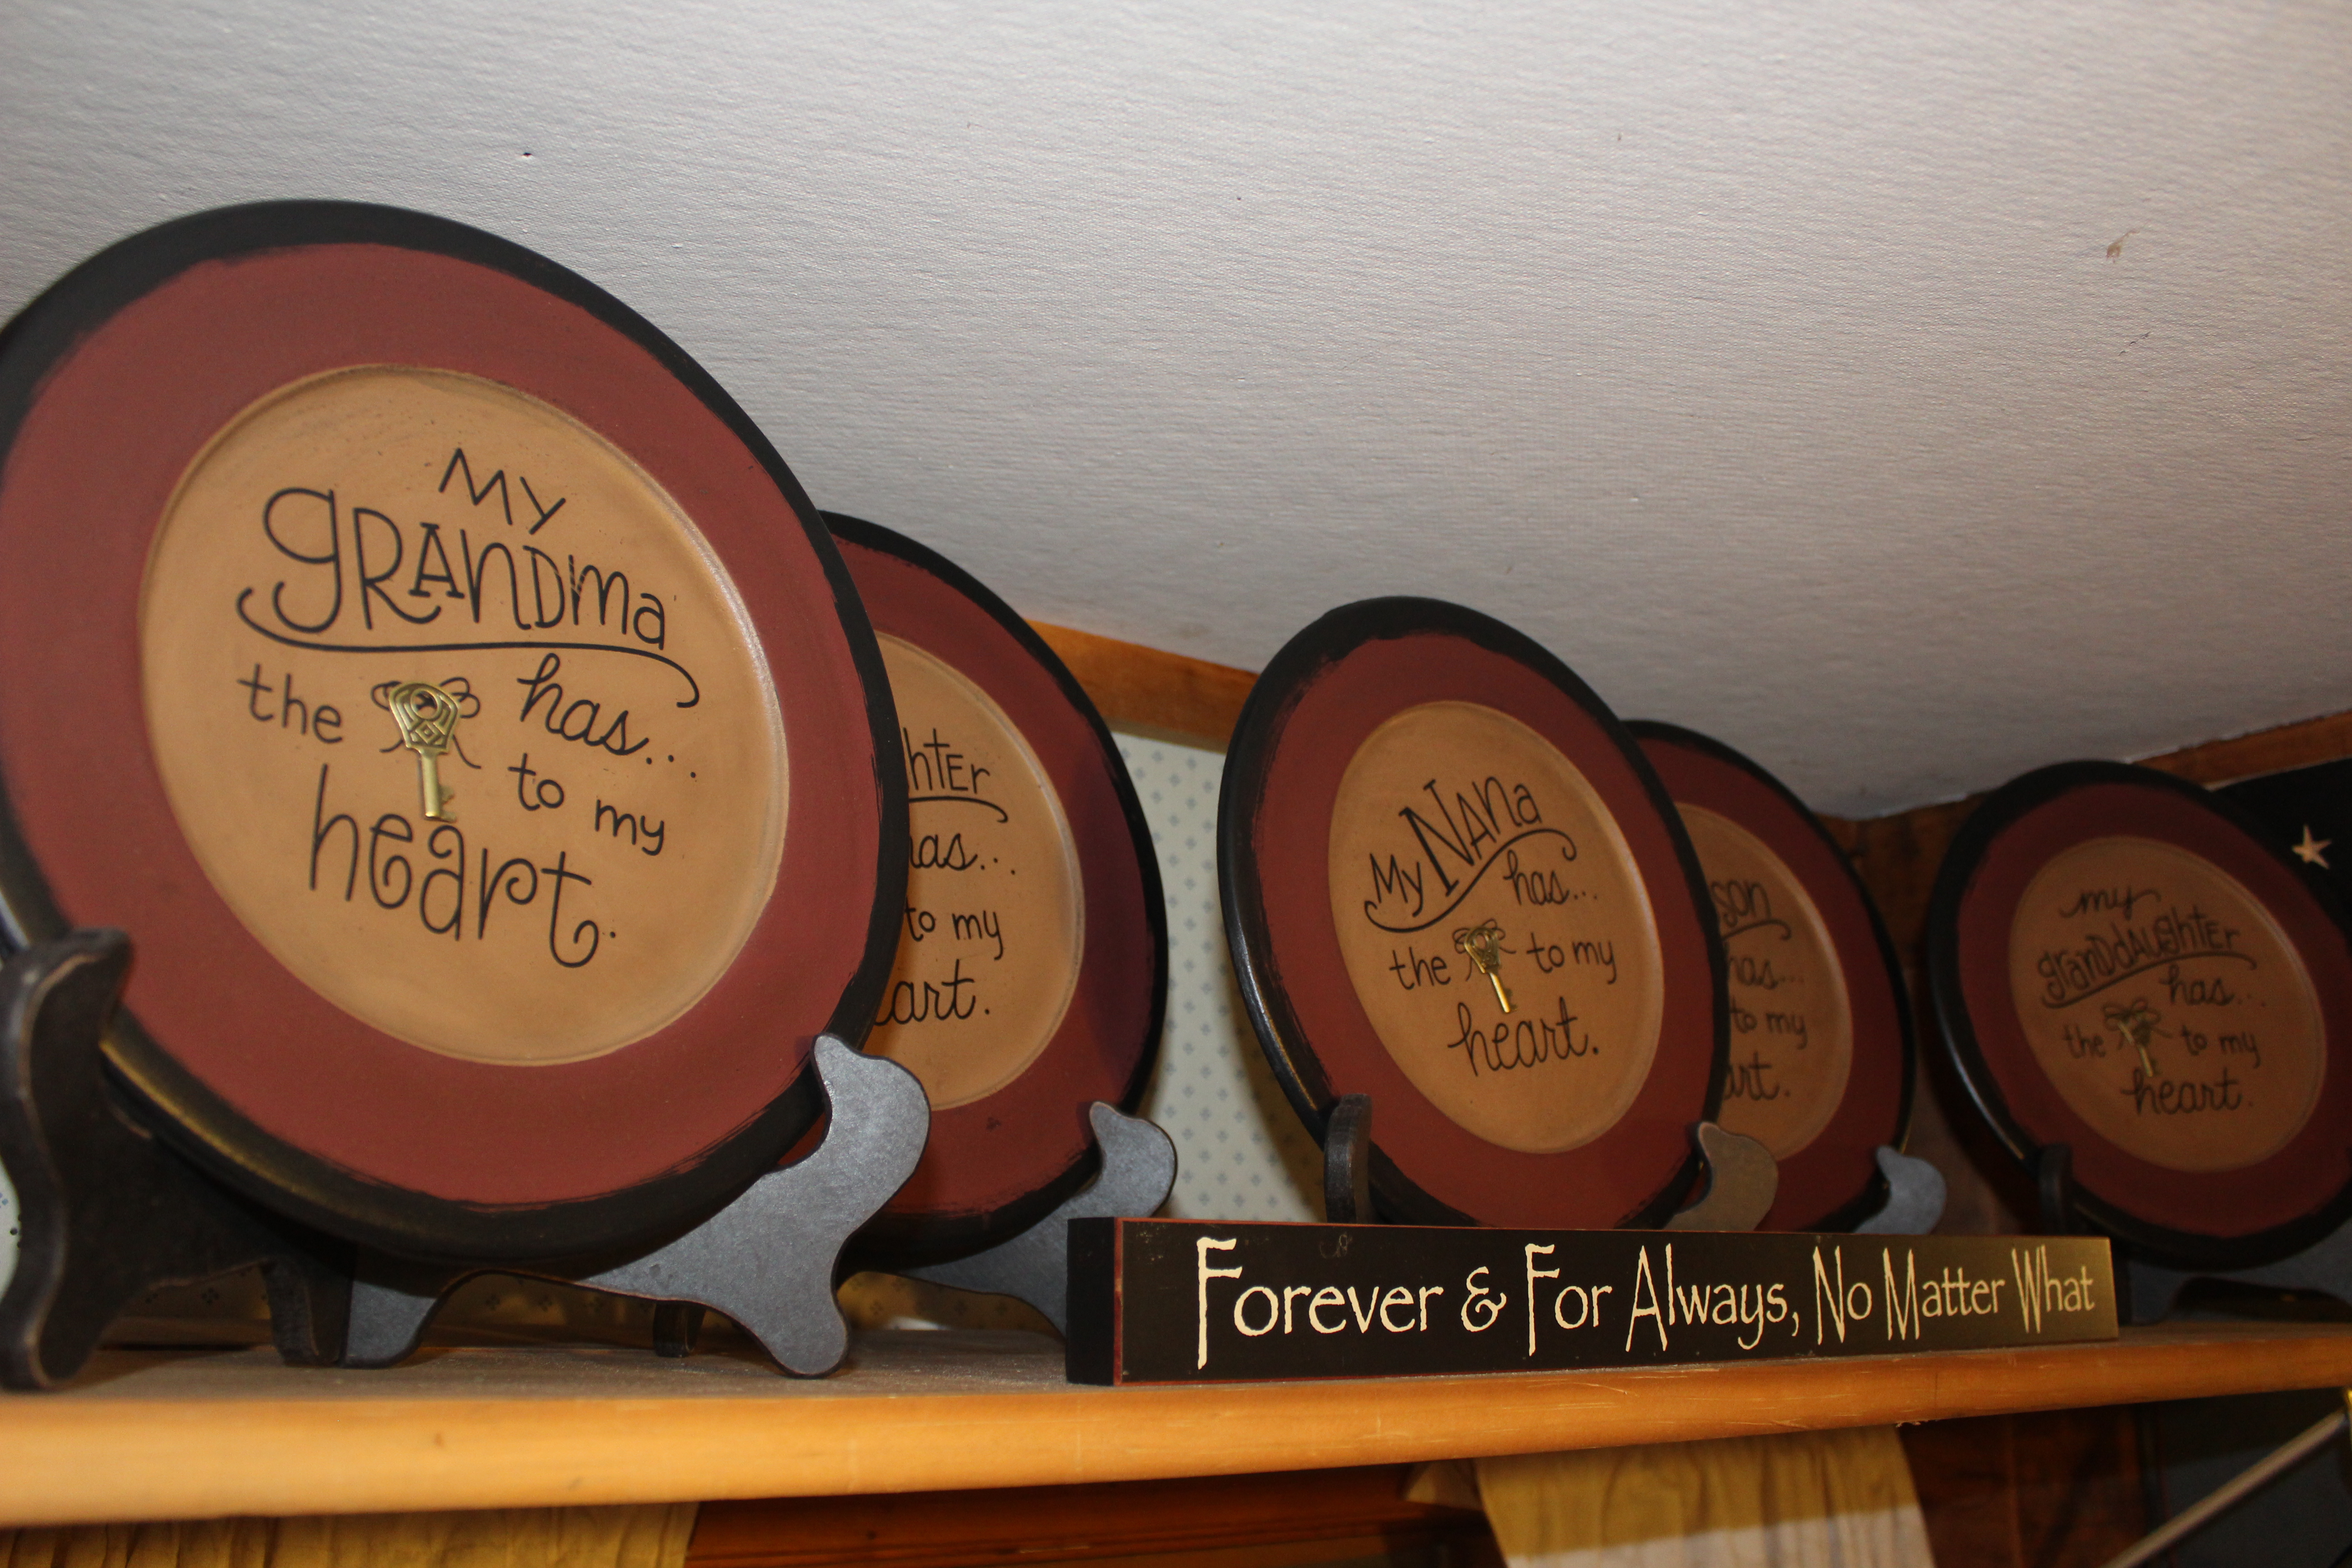 My
grandma
has...
the to my
heart.
hter
has...
to my
art.
My Nana
has...
the to my
heart.
son
has...
to my
art.
my
granddaughter
has...
the to my
heart.
Forever & For Always, No Matter What